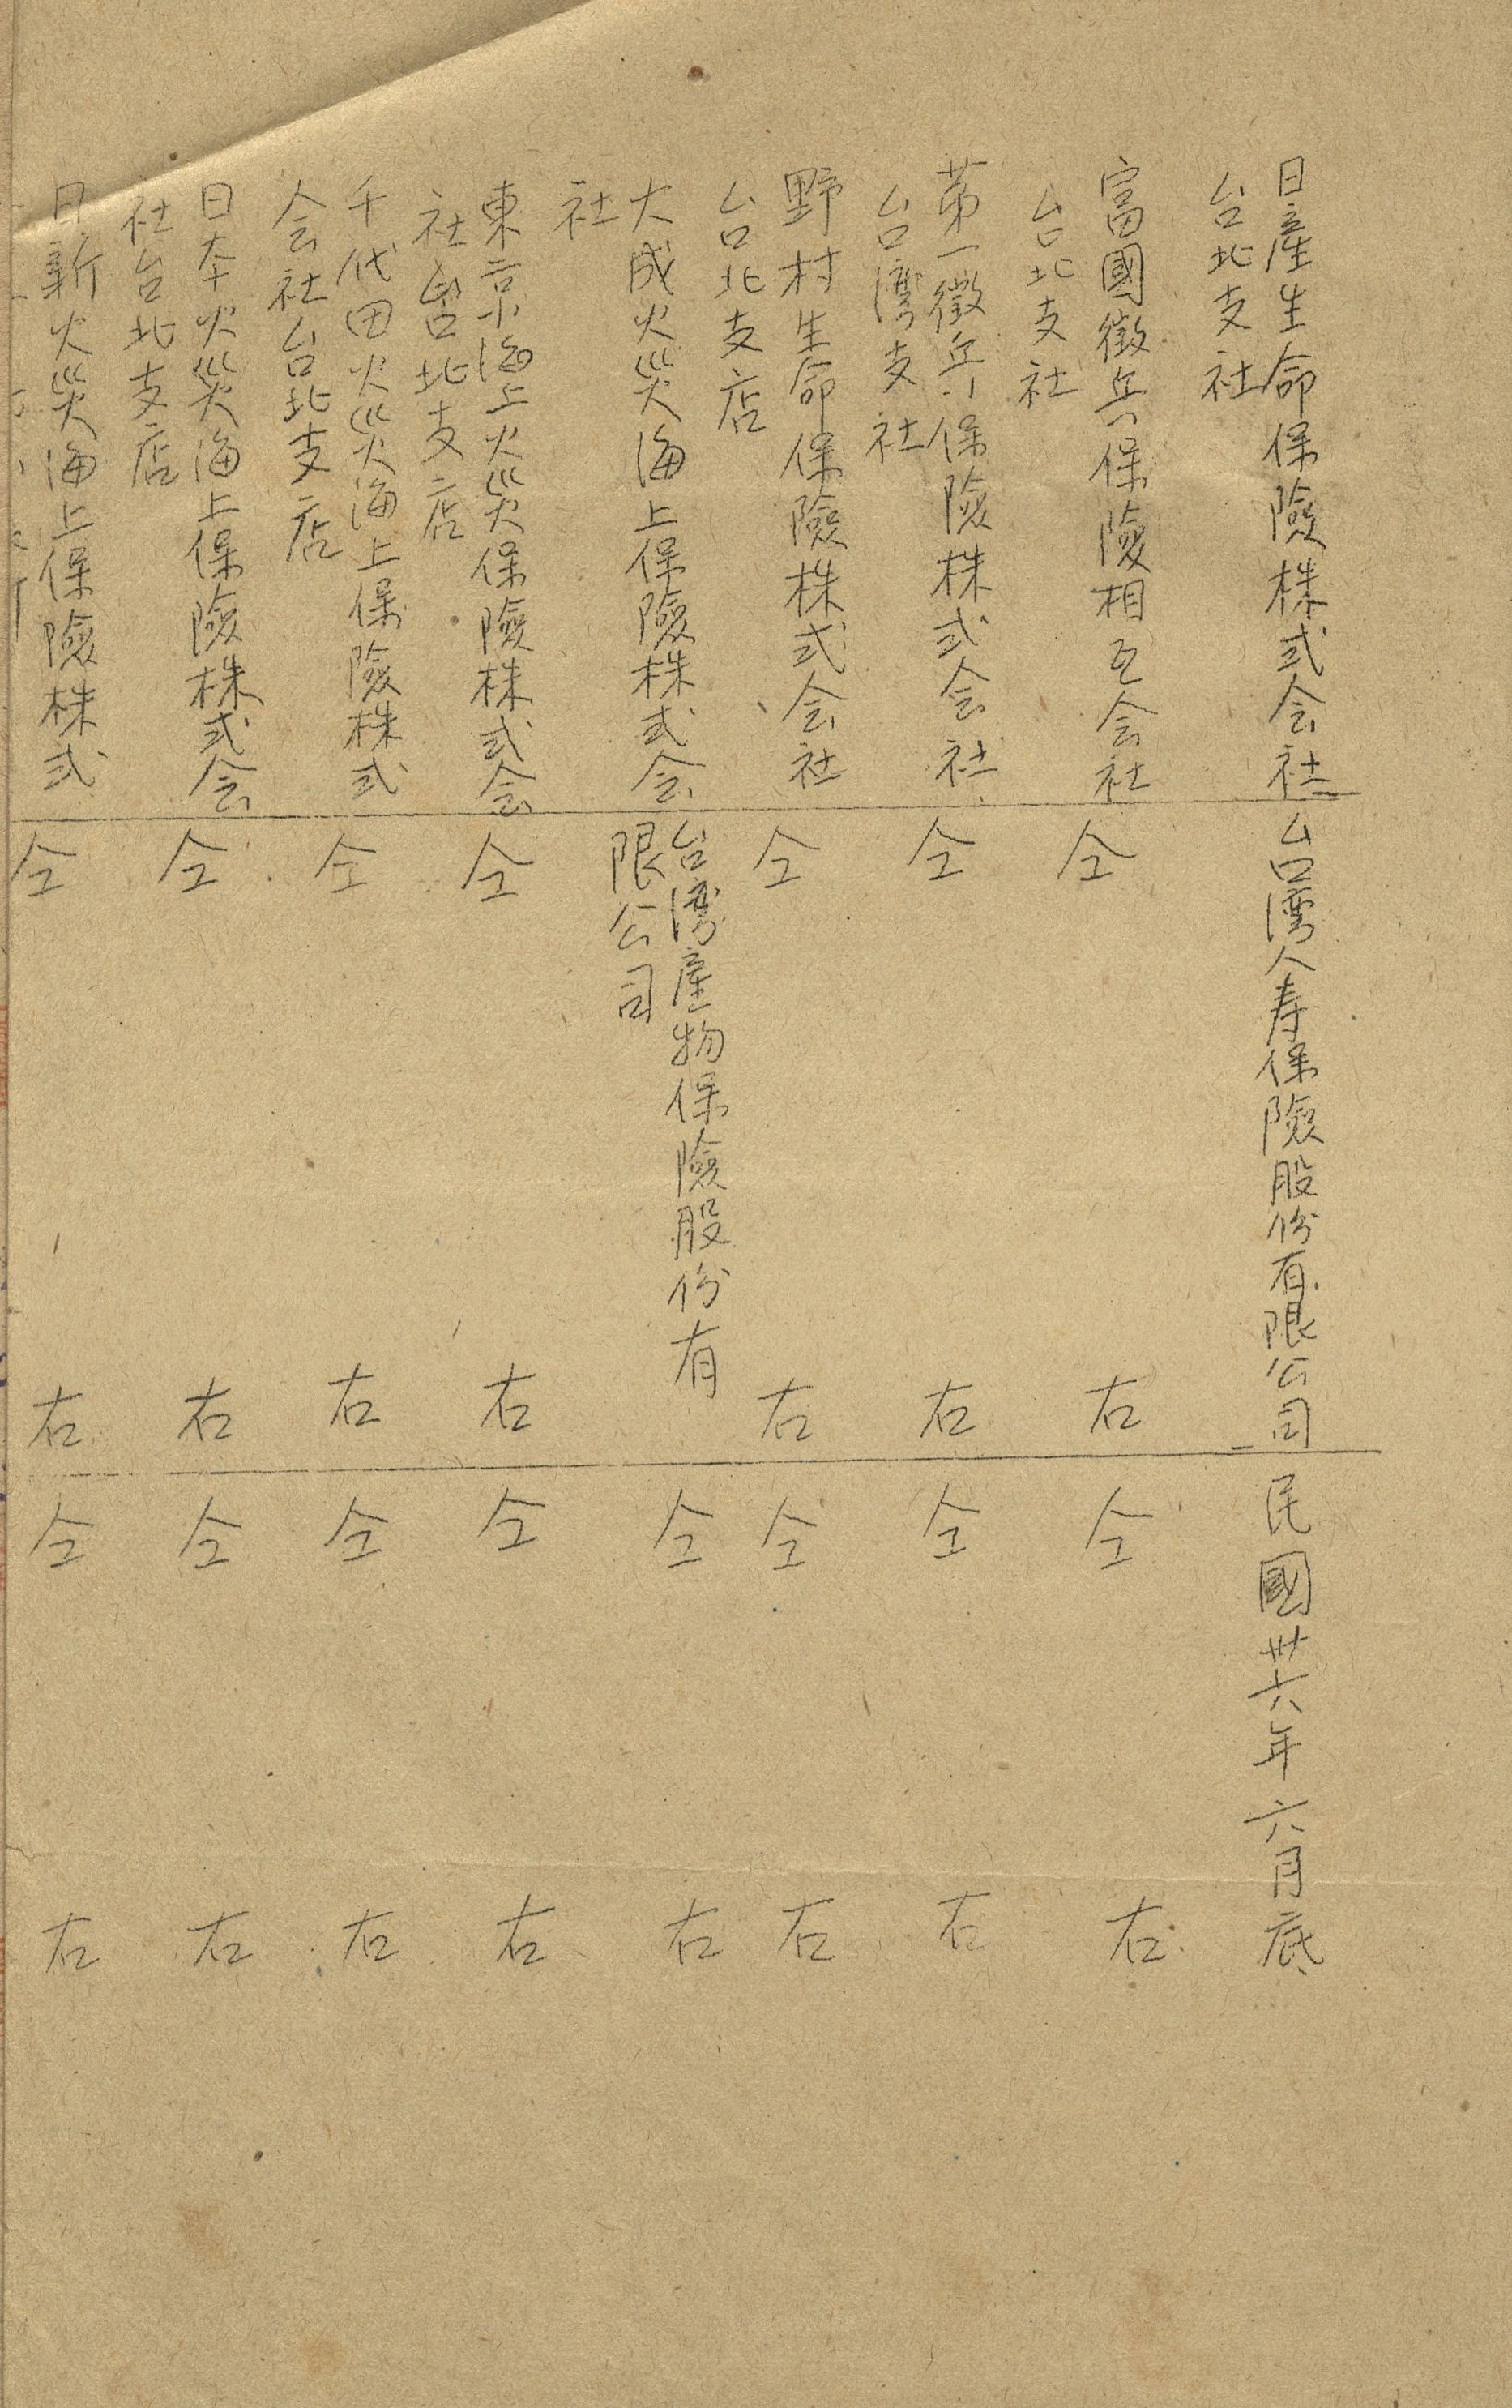 日產生命保險株式会社
台北支社
台湾人寿保險股份有限公司
民國卅六年六月底
富國徵兵保險相互会社
台北支社
仝右
仝右
第一徵兵保險株式会社
台湾支社
仝右
仝右
野村生命保險株式会社
台北支店
仝右
仝右
大成火災海上保險株式会
社
台湾產物保險股份有
限公司
仝右
東京海上火災保險株式会
社台北支店
仝右
仝右
千代田火災海上保險株式
会社台北支店
仝右
仝右
日本火災海上保險株式会
社台北支店
仝右
仝右
日新火災海上保險株式
仝右
仝右